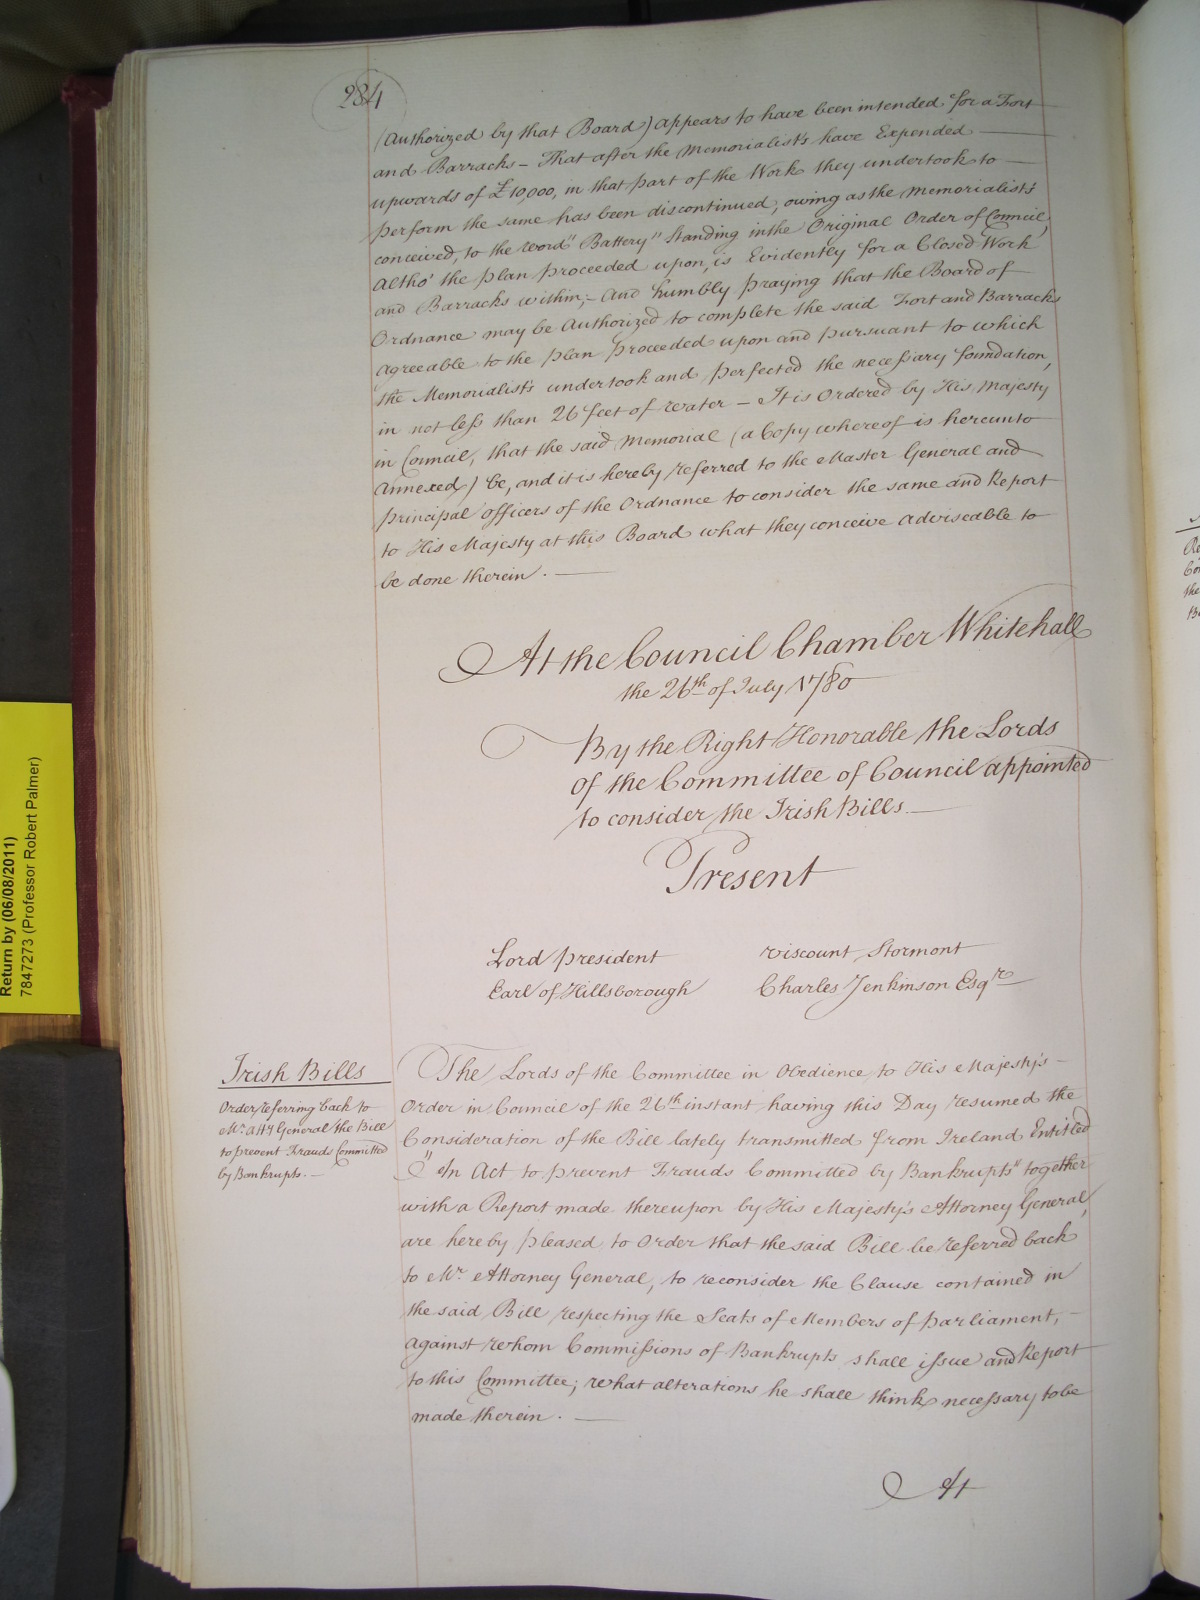 284
(Authorized by that Board) appears to have been intended for a Fort
and Barracks – That after the Memorialists have Expended
upwards of £10,000, in that part of the Work they undertook to
perform the same has been discontinued, owing as the Memorialists
conceived, to the word "Battery" Standing in the Original Order of Council,
altho' the plan proceeded upon, is Evidently for a Closed Work
and Barracks within;– And humbly praying that the Board of
Ordnance may be Authorized to complete the said Fort and Barracks
agreeable to the plan proceeded upon and pursuant to which
the Memorialists undertook and perfected the necessary foundation,
in not less than 26 feet of water – It is Ordered by His Majesty
in Council, that the said Memorial (a Copy whereof is hereunto
Annexed) be, and it is hereby referred to the Master General and
principal officers of the Ordnance to consider the same and Report
to His Majesty at this Board what they conceive adviseable to
be done therein. —
At the Council Chamber Whitehall
the 26th of July 1780
By the Right Honorable the Lords
of the Committee of Council appointed
to consider the Irish Bills. —
Present
Lord president Viscount Stormont
Earl of Hillsborough Charles Jenkinson Esqr
Irish Bills
Order referring back to
Mr. Atty General the Bill
to prevent Frauds Committed
by Bankrupts. —
The Lords of the Committee in Obedience to His Majesty's –
Order in Council of the 26th instant having this Day resumed the
Consideration of the Bill lately transmitted from Ireland Entitled
"An Act to prevent Frauds Committed by Bankrupts" together
with a Report made thereupon by His Majesty's Attorney General,
are hereby pleased to order that the said Bill be referred back
to Mr. Attorney General, to reconsider the Clause contained in
the said Bill respecting the Seats of Members of parliament, –
against whom Commissions of Bankrupts shall issue and Report
to this Committee; what alterations he shall think necessary to be
made therein. —
At
Return by (06/08/2011)
7847273 (Professor Robert Palmer)